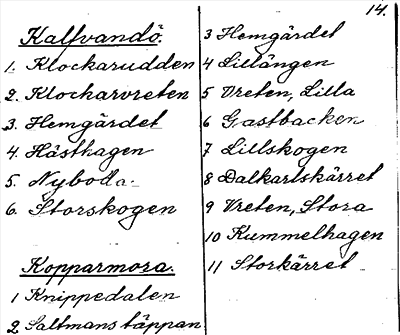 14.
Kalfvandö.
1. Klockarudden
2. Klockarvreten
3. Hemgärdet
4. Hästhagen
5. Nyboda
6. Storskogen
Kopparmora.
1 Knippedalen
2 Saltmans täppan
3 Hemgärdet
4 Lillängen
5 Vreten, Lilla
6 Gastbacken
7 Lillskogen
8 Dalkarlskärret
9 Vreten, Stora
10 Kummelhagen
11 Storkärret